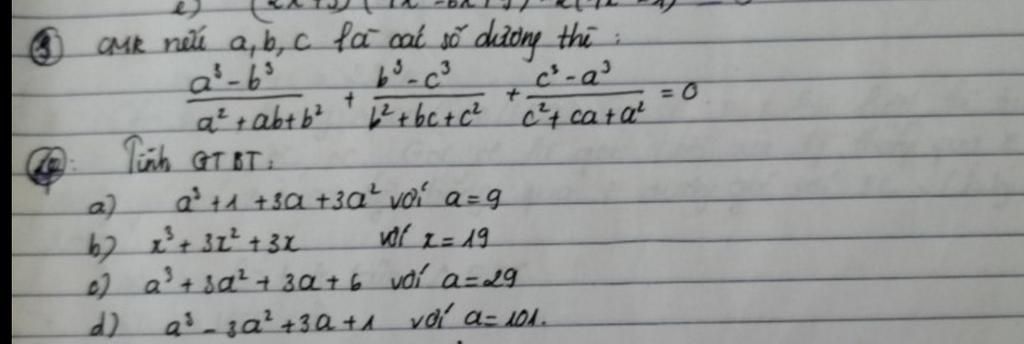 ③ CMR nếu a, b, c là các số dương thì:
a³ - b³ / a² + ab + b² + b³ - c³ / b² + bc + c² + c³ - a³ / c² + ca + a² = 0
④: Tính GTBT:
a) a³ + 1 + 3a + 3a² với a = 9
b) x³ + 3x² + 3x với x = 19
c) a³ + 3a² + 3a + 6 với a = 29
d) a³ - 3a² + 3a + 1 với a = 101.